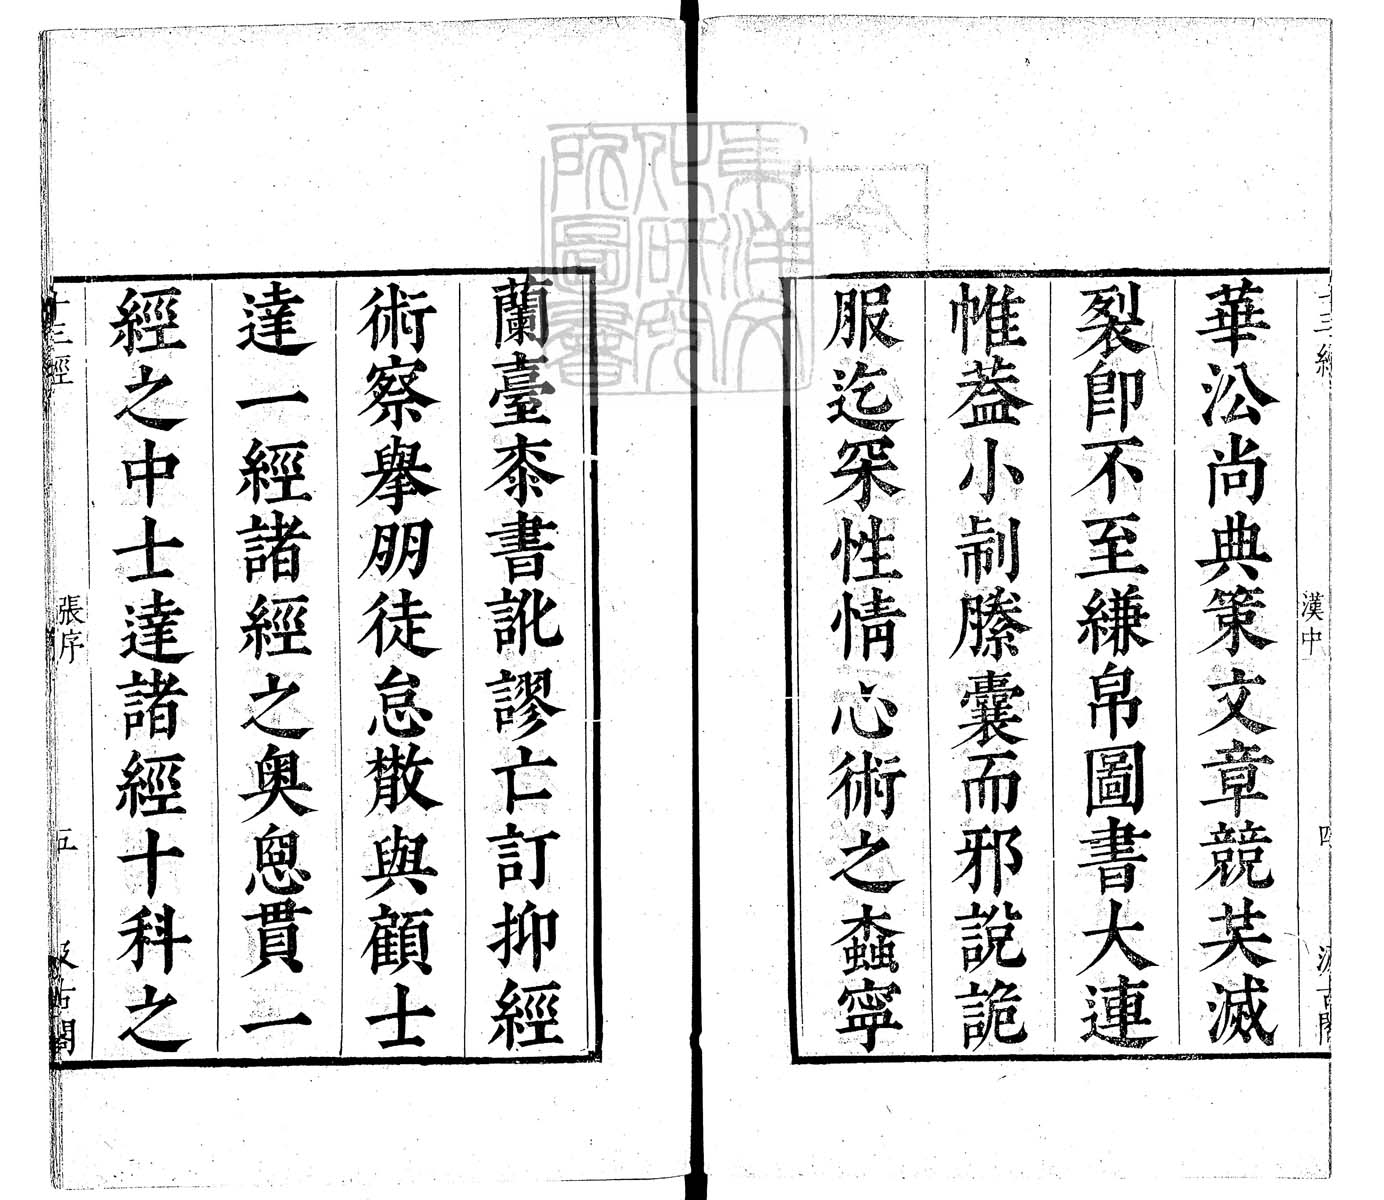 十三經
漢中
四
汲古閣
華㳂尚典策文章競芺滅
裂卽不至縑帛圖書大連
帷葢小制縢囊而邪說詭
服迄罙性情心術之蠧寜
蘭臺桼書訛謬亡訂抑經
術察擧朋徒怠散與顧士
達一經諸經之奥恖貫一
經之中士達諸經十科之
十三經
張序
五
汲古閣
東洋文
化研究
所圖書